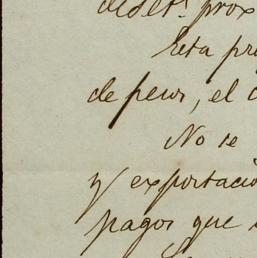 prox
Esta pr
de pesos, el
No se
y exportació
pagos que